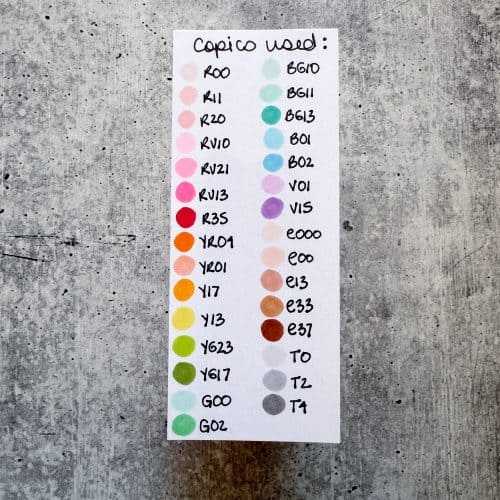 Copics used:
R00
R11
R20
RV10
RV21
RV13
R35
YR04
YR01
Y17
Y13
YG23
YG17
G00
G02
BG10
BG11
BG13
B01
B02
V01
V15
E000
E00
E13
E33
E37
T0
T2
T4